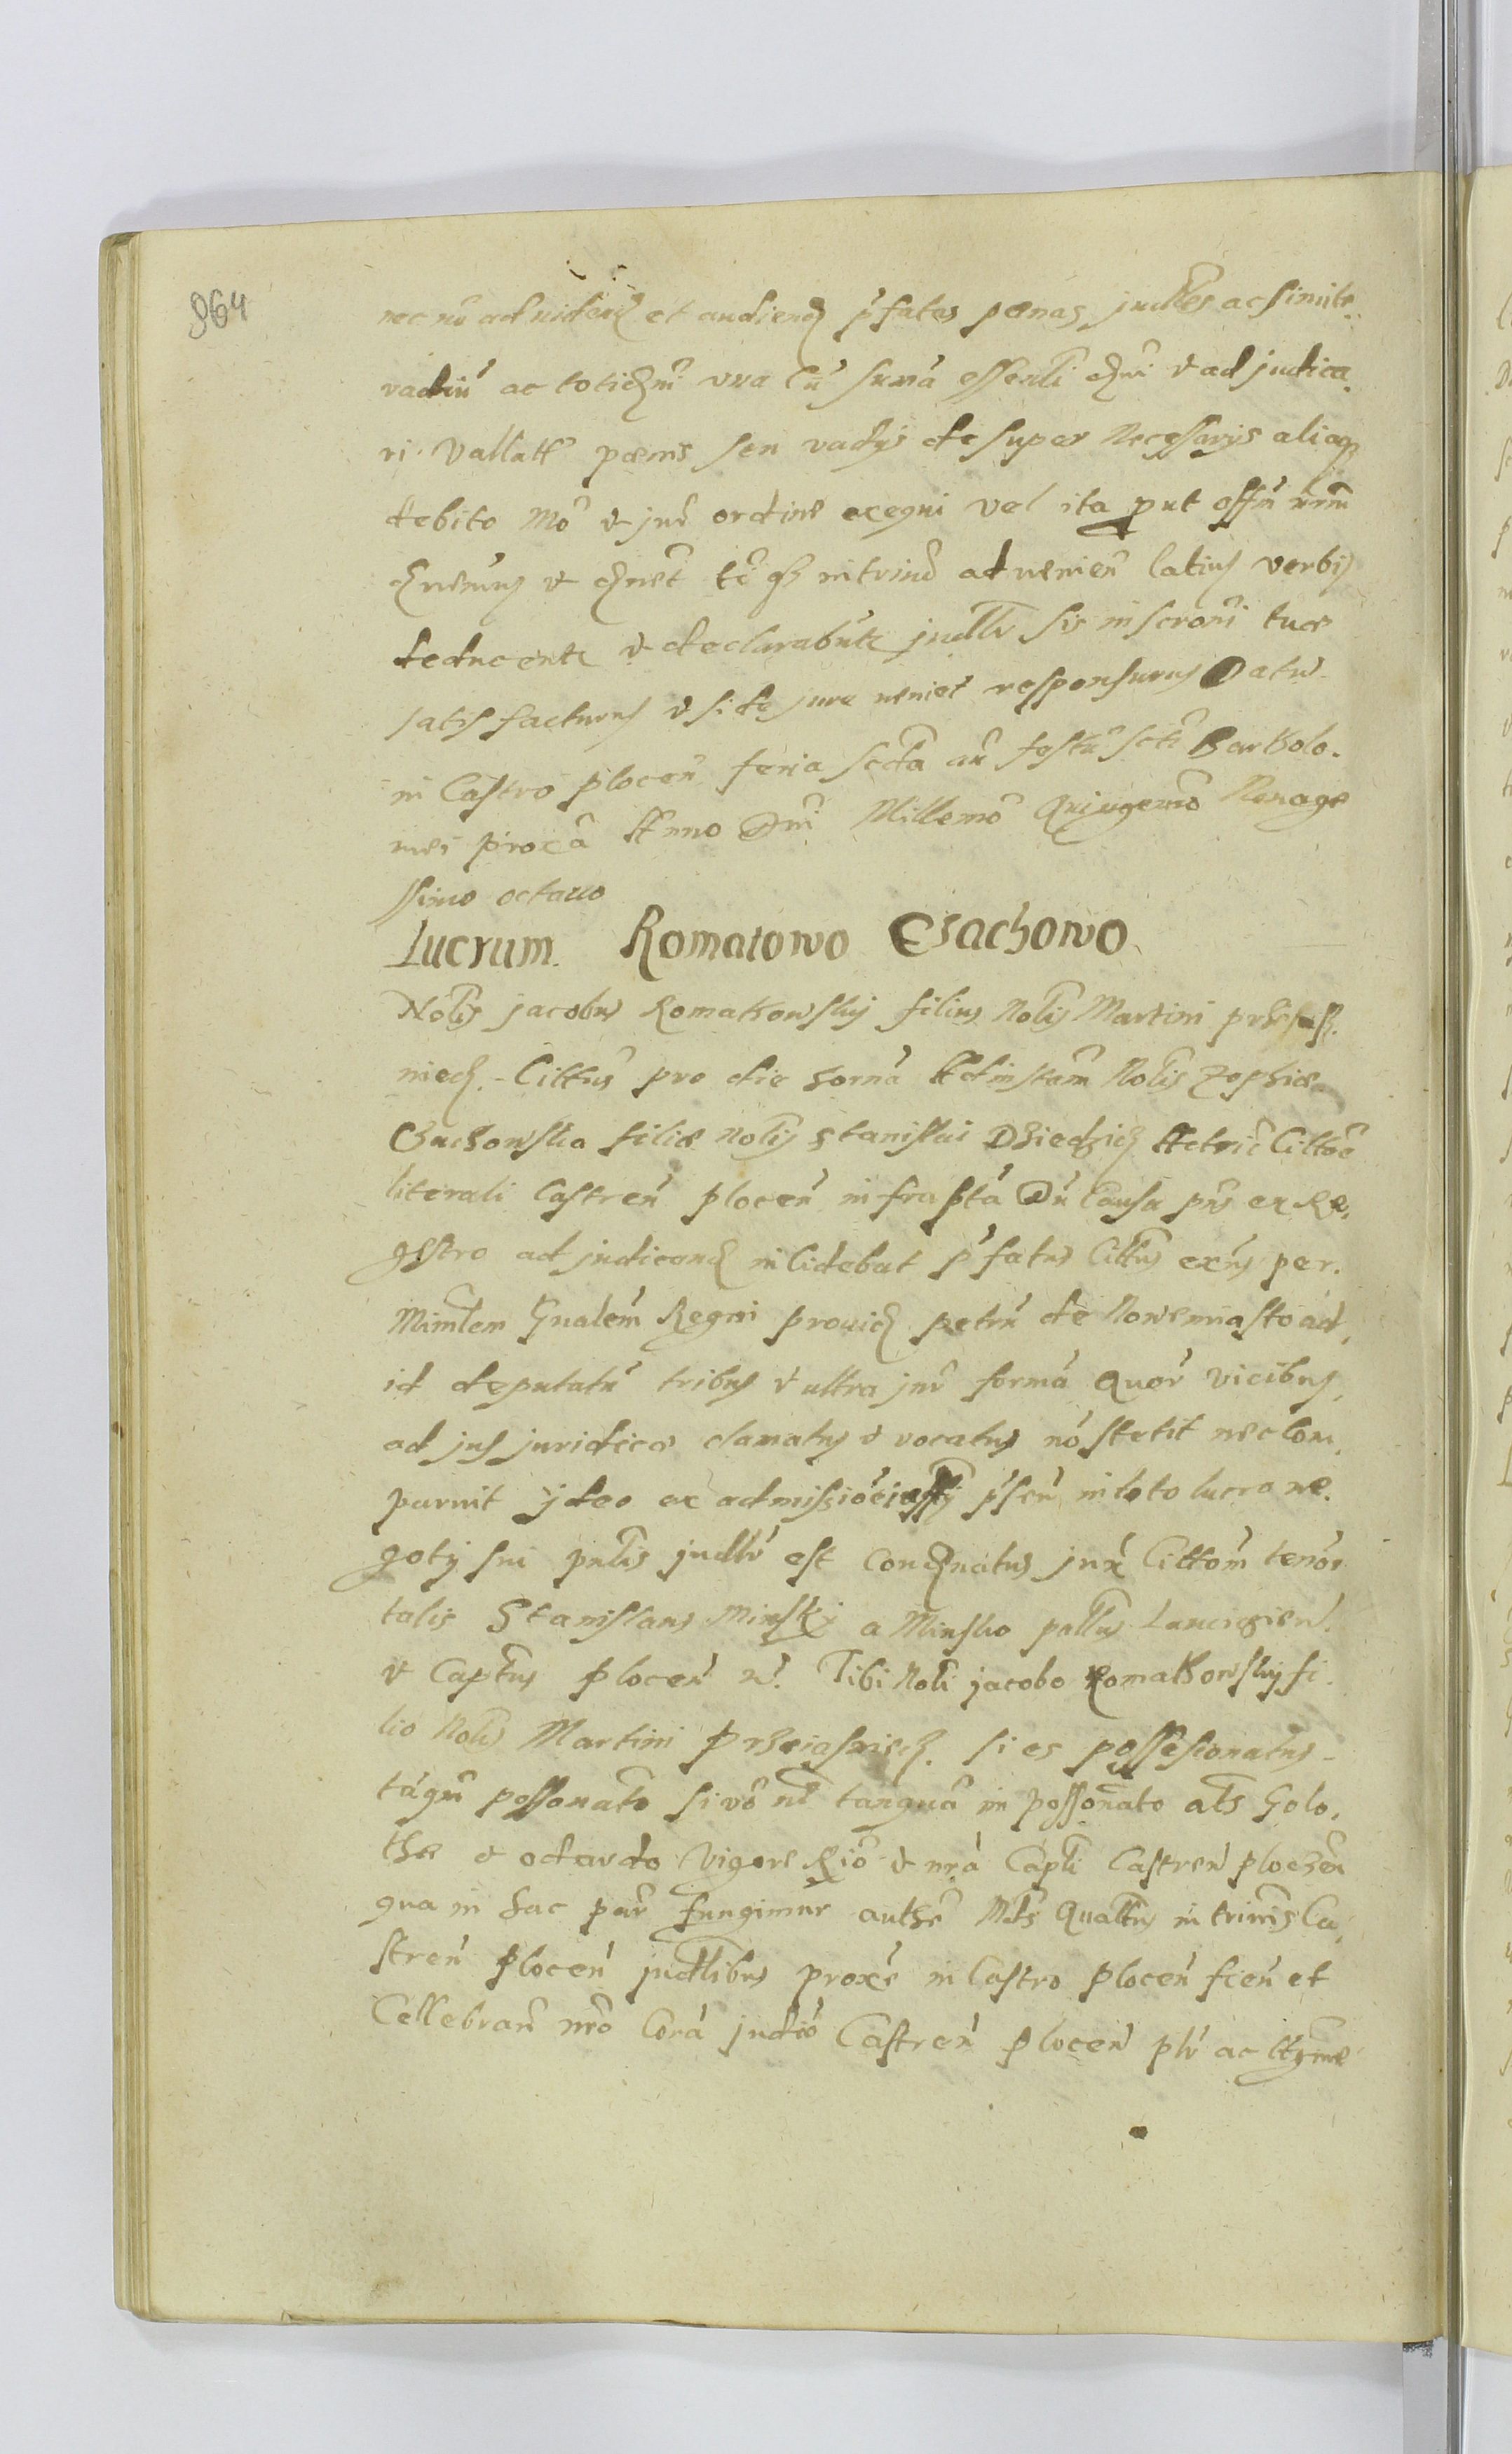 864
nec nõ ad videnđ et audienđ p̃fatas pœnas judles ac simile
vadiũ ac totiđm vna cũ suma essenli đni & adjudica
ri vallatt pœnis seu vadys desuper necessarys aliasq
debito mõ & jur̃ ordine exequi vel ita put offm̃ nrm̃
& tč in trind advenien̄ latius verbis
deducentr & declarabũtr judlr sis inscroni tuæ
satisfacturus & si de jure veniet responsurus Datũ
in Castro plocen̄ feria scđa an̄ festũ scti Bartholo
mei proxa Anno Dni Millemo Quingemo Nonage
ssimo octavo
Lucrum. Romatowo Czachowo
Nolis jacobus Romathowsky filius Nolis Martini
 Cittus pro die horna Ad instam̄ Nolis Zophiæ
Czachowska filiæ nolis Stanislai Dziedzic Actric Cittõe
literali Castren̄ plocen̄ infrasčta Dũ causa pñs ex Re
gestro ad judicanđ incidebat p̃fatus Cittus exñs per
Minlem Gnalem Regni provid petrũ de Nowemiasto ad
id deputatũ tribus & ultra jur̃ formã Quor̃ vicibus
ad jus juridice clamatus & vocatus nõ stetit nec com
paruit jdeo ex admissiõe p̃sen̄ in toto lucro ne
gotij sui pñlis judlr̃ est conđnatus jux̃ Cittom̃ tenor
talis Stanislaus Minsky a Minsko pallus Lancicien̄
& Captus plocen̄ &. Tibi Noli jacobo Romathowsky fi
lio Nolis Martini si es possesionatus
tãqm̃ possonato si võ nõ tanqua in possonato als Golo
tha & odardo Vigore Rio & nrã Capli Castren̄ plocen̄
qua in hac par̃ fungimur authẽ Mds Quattus in trinis Ca
stren̄ plocen̄ judlibus proxẽ in Castro plocen̄ fien̄ et
Cellebran̄ nro Corã judio Castren̄ plocen̄ plr̃ ac ltgme